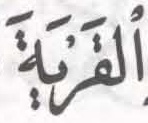 اَلْقَرْيَةَ